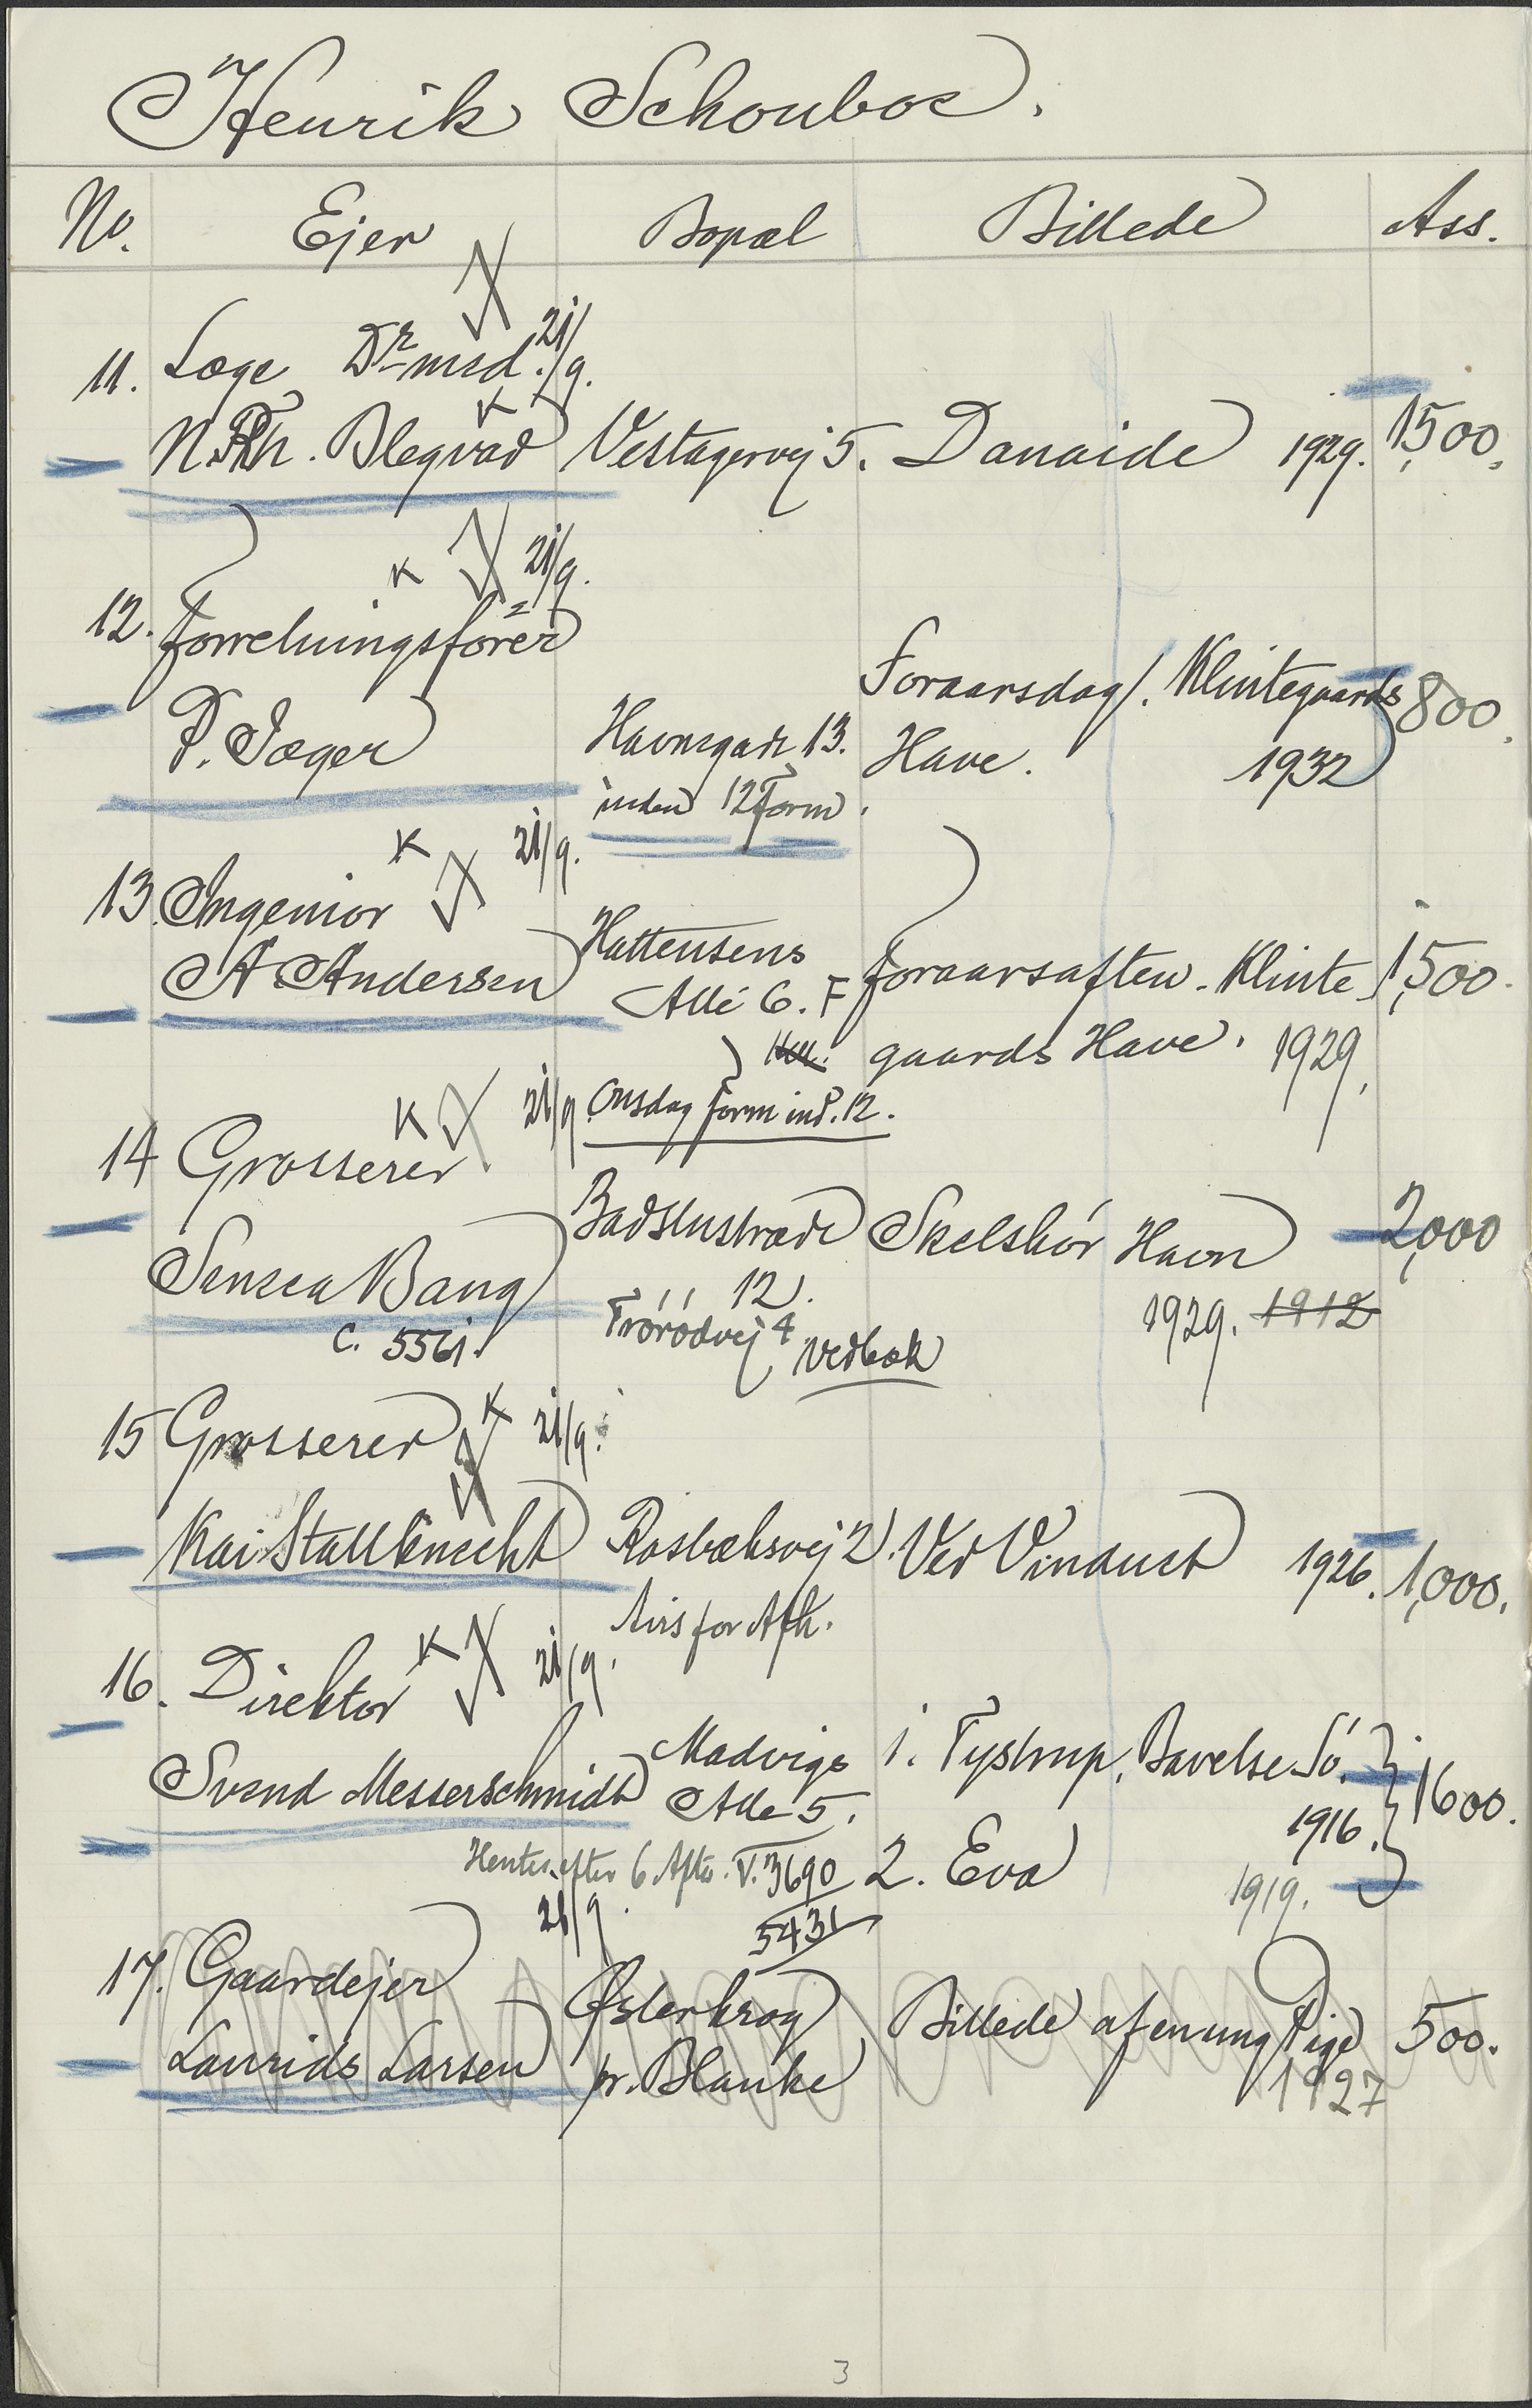 Henrik Schouboe.
No. Ejer Bopæl Billede Ass.
11. Læge Dr med. 21/9.
N. Rh. Blegvad Vestagervej 5. Danaide 1929. 1,500.
K 21/9.
12. Forretningsfører
P. Jæger Havnegade 13. Foraarsdag i. Klintegaards 800.
inden 12 Form. Have. 1932
K 21/9.
13. Ingeniør
A Andersen Hattensens Foraarsaften. Klinte 1,500.
Allé 6. F gaards Have. 1929.
K 21/9 Onsdag form ind. 12.
14 Grosserer
Seneca Bang Badstustræde Skelskör Havn 2,000
C. 5561. 12. 1929. 1912
Trørødvej 4 Vedbæk
15 Grosserer K 21/9.
Kai Stallknecht Rosbæksvej 2. Ved Vinduet 1926. 1,000.
Avis for Afh.
16. Direktør K 21/9.
Svend Messerschmidt Madvigs 1. Tystrup, Bavelse Sö. 1600.
Alle 5. 1916.
Hentes efter 6 Aften. V. 3690 2. Eva 1919.
21/9. 5431
17. Gaardejer
Laurids Larsen Østerkrog Billede af en ung Pige 500.
pr. Blanke 1927
3